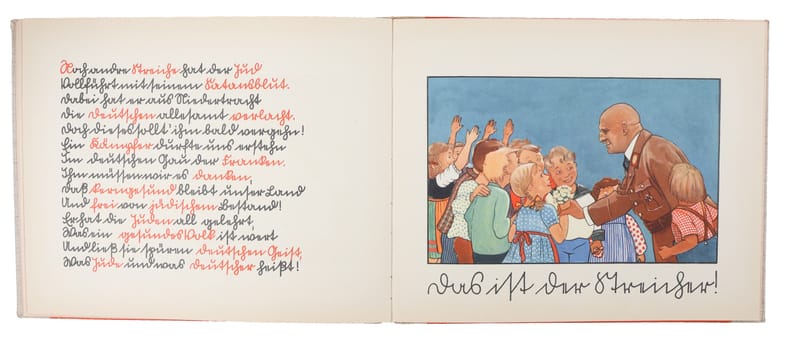 Noch andre Streiche hat der Jud
Vollführt mit seinem Satansblut.
Dabei hat er aus Niedertracht
Die Deutschen allesamt verlacht.
Doch dieses sollt' ihm bald vergehn!
Ein Kämpfer durfte uns erstehn
Im deutschen Gau der Franken.
Ihm müssen wir es danken,
Daß kerngesund bleibt unser Land
Und frei von jüdischem Bestand!
Er hat die Juden all gelehrt,
Was ein gesundes Volk ist wert
Und ließ sie spüren deutschen Geist,
Was Jude und was Deutscher heißt!
Das ist der Streicher!